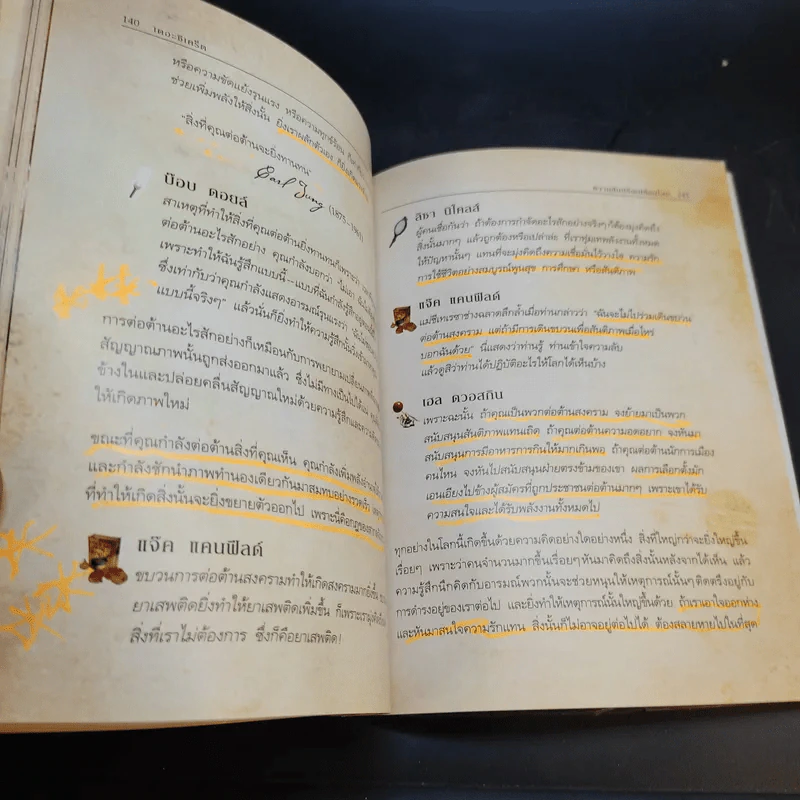 140 เดอะซีเคร็ต
หรือความขัดแย้งรุนแรง หรือความทุกข์ร้อน
ช่วยเพิ่มพลังให้สิ่งนั้น ยิ่งเราผลักตัวเอง
"สิ่งที่คุณต่อต้านจะยิ่งทานทน"
Carl Jung (1875-1961)
บ๊อบ ดอยล์
สาเหตุที่ทำให้สิ่งที่คุณต่อต้านยิ่งทานทนก็เพราะว่า
ต่อต้านอะไรสักอย่าง คุณกำลังบอกว่า "ไม่เอา
เพราะทำให้ฉันรู้สึกแบบนี้—แบบที่ฉันกำลังรู้สึกอยู่
ซึ่งเท่ากับว่าคุณกำลังแสดงอารมณ์รุนแรงว่า
แบบนี้จริงๆ" แล้วนั่นก็ยิ่งทำให้ความรู้สึกนั้น
การต่อต้านอะไรสักอย่างก็เหมือนกับการพยายามเปลี่ยน
สัญญาณภาพนั้นถูกส่งออกมาแล้ว ซึ่งไม่มีทางเป็นไปได้
ข้างในและปล่อยคลื่นสัญญาณใหม่ด้วยความรู้สึกและความ
ให้เกิดภาพใหม่
ขณะที่คุณกำลังต่อต้านสิ่งที่คุณเห็น คุณกำลังเพิ่มพลัง
และกำลังชักนำภาพทำนองเดียวกันมาสมทบอย่างรวดเร็ว
ที่ทำให้เกิดสิ่งนั้นจะยิ่งขยายตัวออกไป เพราะนี่คือกฎของ
แจ๊ค แคนฟีลด์
ขบวนการต่อต้านสงครามทำให้เกิดสงครามมากยิ่งขึ้น
ยาเสพติดยิ่งทำให้ยาเสพติดเพิ่มขึ้น ก็เพราะเรามุ่ง
สิ่งที่เราไม่ต้องการ ซึ่งก็คือยาเสพติด!
ลิซา นิโคลส์
ผู้คนเชื่อกันว่า ถ้าต้องการกำจัดอะไรสักอย่างจริงๆ ก็ต้องมุ่งคิดถึง
สิ่งนั้นมากๆ แล้วถูกต้องหรือเปล่าล่ะ ที่เราทุ่มเทพลังงานทั้งหมด
ให้ปัญหานั้นๆ แทนที่จะมุ่งคิดถึงความเชื่อมั่นไว้วางใจ ความรัก
การใช้ชีวิตอย่างสมบูรณ์พูนสุข การศึกษา หรือสันติภาพ
แจ๊ค แคนฟีลด์
แม่ชีเทเรซาช่างฉลาดลึกล้ำเมื่อท่านกล่าวว่า "ฉันจะไม่ไปร่วมเดินขบวน
ต่อต้านสงคราม แต่ถ้ามีการเดินขบวนเพื่อสันติภาพเมื่อไหร่
บอกฉันด้วย" นี่แสดงว่าท่านรู้ ท่านเข้าใจความลับ
แล้วดูสิว่าท่านได้ปฏิบัติอะไรให้โลกได้เห็นบ้าง
เฮล ดวอสกิน
เพราะฉะนั้น ถ้าคุณเป็นพวกต่อต้านสงคราม จงย้ายมาเป็นพวก
สนับสนุนสันติภาพแทนเถิด ถ้าคุณต่อต้านความอดอยาก จงหันมา
สนับสนุนการมีอาหารการกินให้มากเกินพอ ถ้าคุณต่อต้านนักการเมือง
คนไหน จงหันไปสนับสนุนฝ่ายตรงข้ามของเขา ผลการเลือกตั้งมัก
เอนเอียงไปข้างผู้สมัครที่ถูกประชาชนต่อต้านมากๆ เพราะเขาได้รับ
ความสนใจและได้รับพลังงานทั้งหมดไป
ทุกอย่างในโลกนี้เกิดขึ้นด้วยความคิดอย่างใดอย่างหนึ่ง สิ่งที่ใหญ่กว่าจะยิ่งใหญ่ขึ้น
เรื่อยๆ เพราะว่าคนจำนวนมากขึ้นเรื่อยๆ หันมาคิดถึงสิ่งนั้นหลังจากได้เห็น แล้ว
ความรู้สึกนึกคิดกับอารมณ์พวกนั้นจะช่วยหนุนให้เหตุการณ์นั้นๆ ติดตรึงอยู่กับ
การดำรงอยู่ของเราต่อไป และยิ่งทำให้เหตุการณ์นั้นใหญ่ขึ้นด้วย ถ้าเราเอาใจออกห่าง
และหันมาสนใจความรักแทน สิ่งนั้นก็ไม่อาจอยู่ต่อไปได้ ต้องสลายหายไปในที่สุด